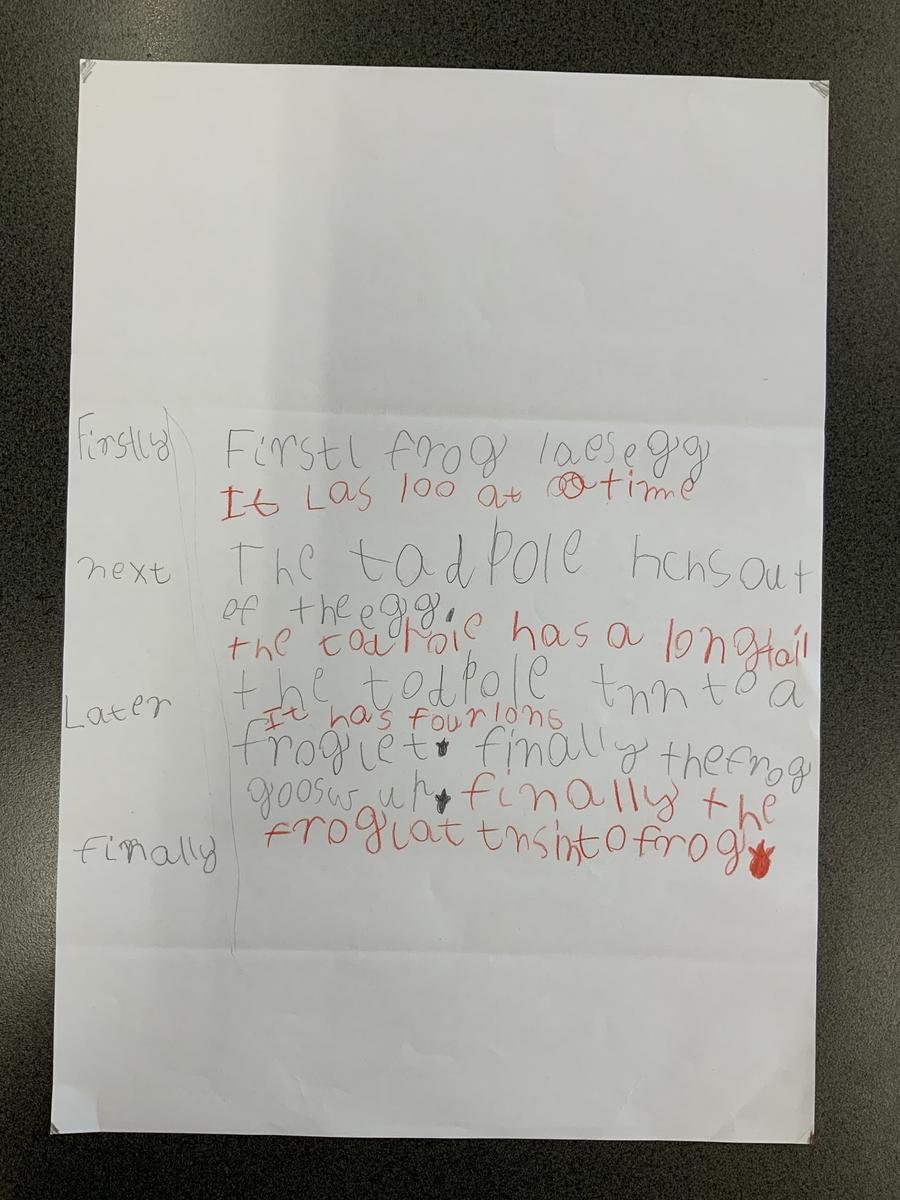 Firstly
Firstl frog laesegg
It Las 100 at a time
next
The tadpole hchsout
of the egg.
the tadpole has a longtail
Later
the tadpole tnn to a
It has four long
froglet. finally thefrog
gooswup. finally the
finally
froglat tnsinto frog.